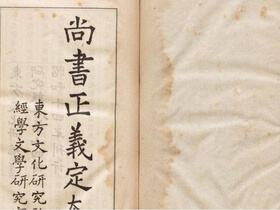 尚書正義定本
東方文化研究
經學文學研究